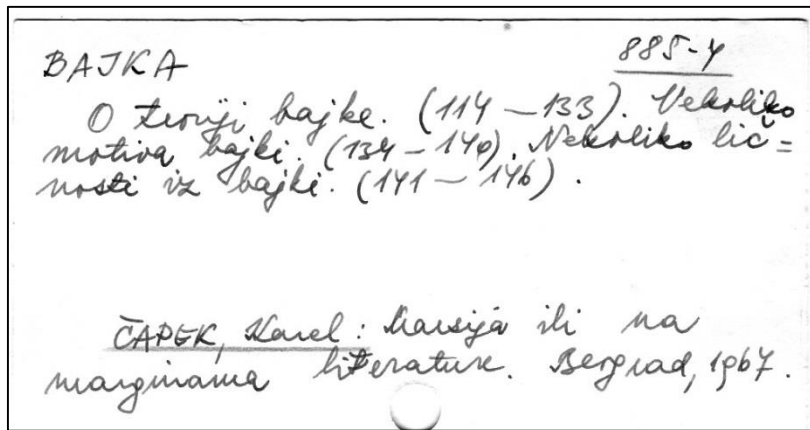 BAJKA
885-4
O teoriji bajke. (114 — 133). Nekoliko
motiva bajki. (134 — 140). Nekoliko lič=
nosti iz bajki. (141 — 146).
ČAPEK, Karel: Marsija ili na
marginama literature. Beograd, 1967.